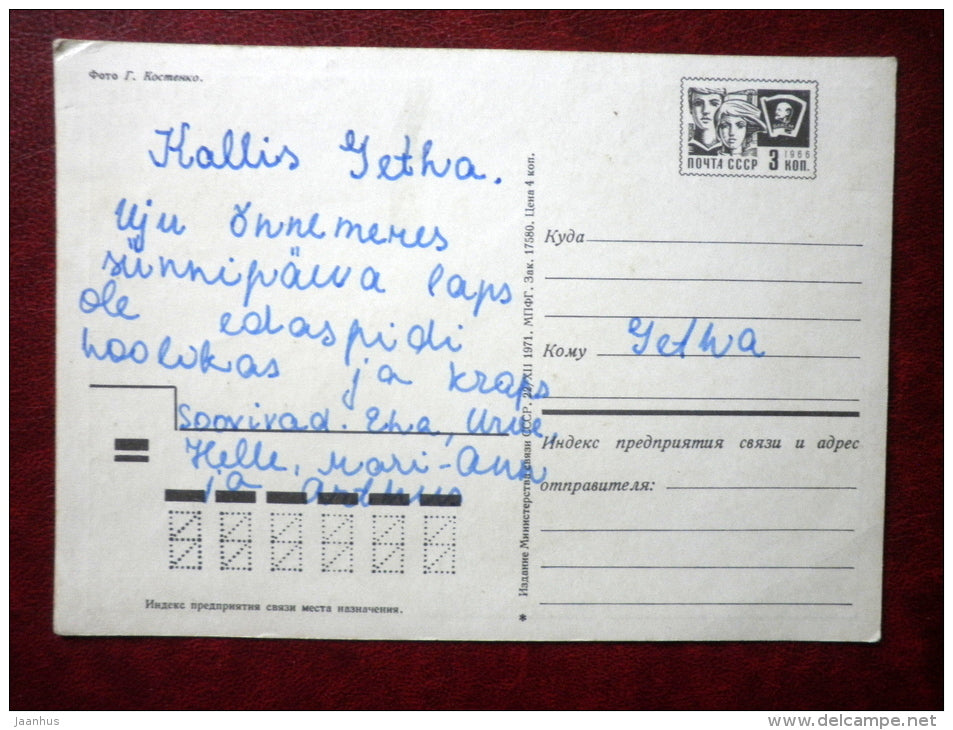 Фото Г. Костенко.
Kallis Getha.
Uju õnnemeres
sünnipäeva laps
ole edaspidi
hoolikas ja kraps
Soovivad. Eha, Urve,
Helle, Mari-Ann
ja
Индекс предприятия связи места назначения.
Издание Министерства связи СССР. 22/XII 1971. МПФГ. Зак. 17580. Цена 4 коп.
*
1966
ПОЧТА СССР 3 КОП.
Куда
Кому Getha
Индекс предприятия связи и адрес
отправителя:
Jaanhus
www.delcampe.net